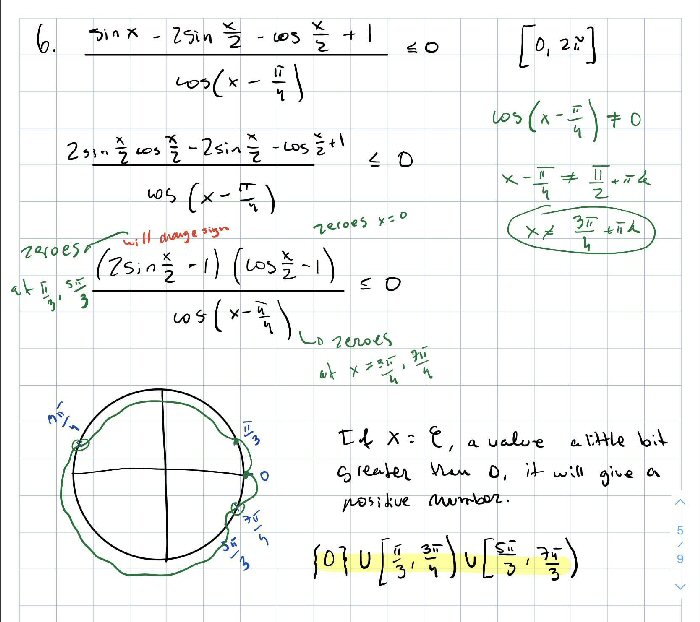 6. (sin x - 2sin x/2 - cos x/2 + 1) / cos(x - π/4) ≤ 0
[0, 2π]
cos(x - π/4) ≠ 0
(2sin x/2 cos x/2 - 2sin x/2 - cos x/2 + 1) / cos(x - π/4) ≤ 0
x - π/4 ≠ π/2 + πk
x ≠ 3π/4 + πk
zeroes at π/3, 5π/3
will change sign
zeroes x=0
((2sin x/2 - 1)(cos x/2 - 1)) / cos(x - π/4) ≤ 0
↳ zeroes
at x = 3π/4, 7π/4
3π/4
π/3
0
7π/4
5π/3
If x = ε, a value a little bit
greater than 0, it will give a
positive number.
{0} ∪ [π/3, 3π/4) ∪ [5π/3, 7π/3)
5
/
9